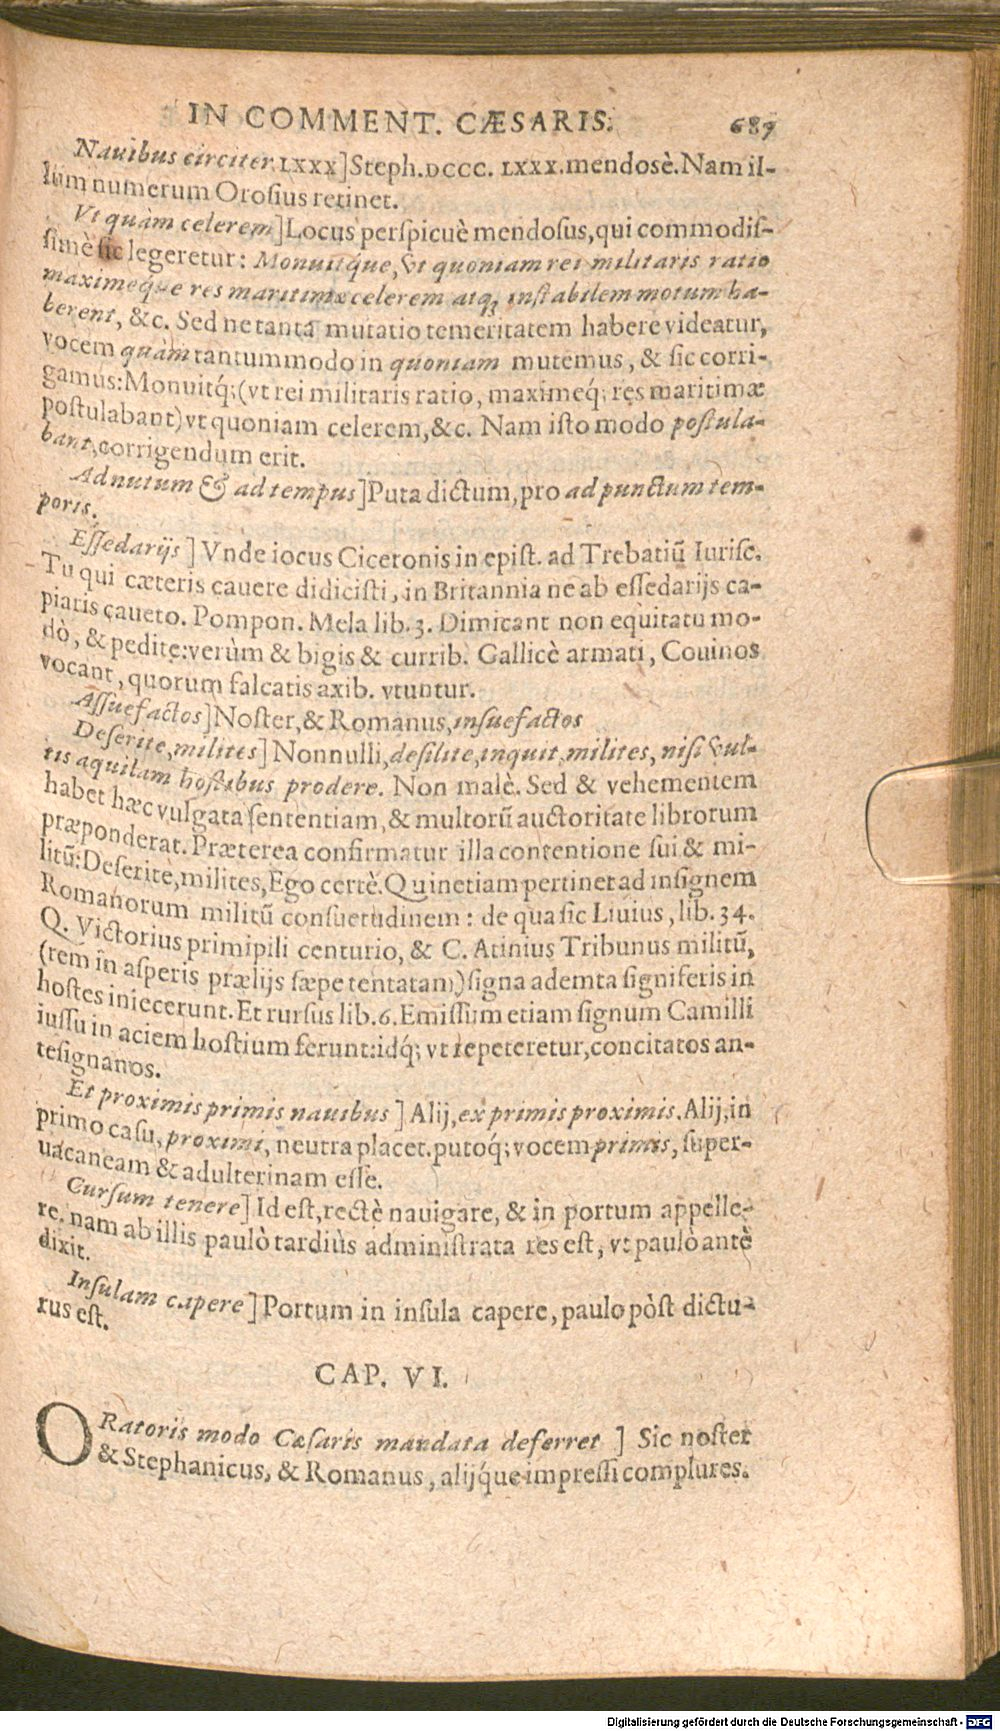 IN COMMENT. CÆSARIS. 687
Nauibus circiter LXXX] Steph. DCCC. LXXX. mendosè. Nam il-
lum numerum Orosius retinet.
Vt quàm celerem] Locus perspicuè mendosus, qui commodis-
simè sic legeretur: Monuitq́ue, vt quoniam rei militaris ratio
maximeq́ue res maritimæ celerem atq; instabilem motum ha-
berent, &c. Sed ne tanta mutatio temeritatem habere videatur,
vocem quàm tantummodo in quoniam mutemus, & sic corri-
gamus: Monuitq́; (vt rei militaris ratio, maximeq́; res maritimæ
postulabant) vt quoniam celerem, &c. Nam isto modo postula-
bant, corrigendum erit.
Ad nutum & ad tempus] Puta dictum, pro ad punctum tem-
poris.
Essedarijs] Vnde iocus Ciceronis in epist. ad Trebatiũ Iurisc.
Tu qui cæteris cauere didicisti, in Britannia ne ab essedarijs ca-
piaris caueto. Pompon. Mela lib. 3. Dimicant non equitatu mo-
dò, & pedite: verùm & bigis & currib. Gallicè armati, Couinos
vocant, quorum falcatis axib. vtuntur.
Assuefactos] Noster, & Romanus, insuefactos
Deserite, milites] Nonnulli, desilite, inquit, milites, nisi vul-
tis aquilam hostibus prodere. Non malè. Sed & vehementem
habet hæc vulgata sententiam, & multorũ auctoritate librorum
præponderat. Præterea confirmatur illa contentione sui & mi-
litũ: Deserite, milites, Ego certè. Quinetiam pertinet ad insignem
Romanorum militũ consuetudinem: de qua sic Liuius, lib. 34.
Q. Victorius primipili centurio, & C. Atinius Tribunus militũ,
(rem in asperis prælijs sæpe tentatam) signa ademta signiferis in
hostes iniecerunt. Et rursus lib. 6. Emissum etiam signum Camilli
iussu in aciem hostium ferunt: idq́; vt repeteretur, concitatos an-
tesignanos.
Et proximis primis nauibus] Alij, ex primis proximis. Alij, in
primo casu, proximi, neutra placet. putoq́; vocem primis, super-
uacaneam & adulterinam esse.
Cursum tenere] Id est, rectè nauigare, & in portum appelle-
re. nam ab illis paulò tardiùs administrata res est, vt paulò antè
dixit.
Insulam capere] Portum in insula capere, paulo pòst dictu-
rus est.
CAP. VI.
ORatoris modo Cæsaris mandata deferret] Sic noster
& Stephanicus, & Romanus, alijq́ue impressi complures.
Digitalisierung gefördert durch die Deutsche Forschungsgemeinschaft - DFG